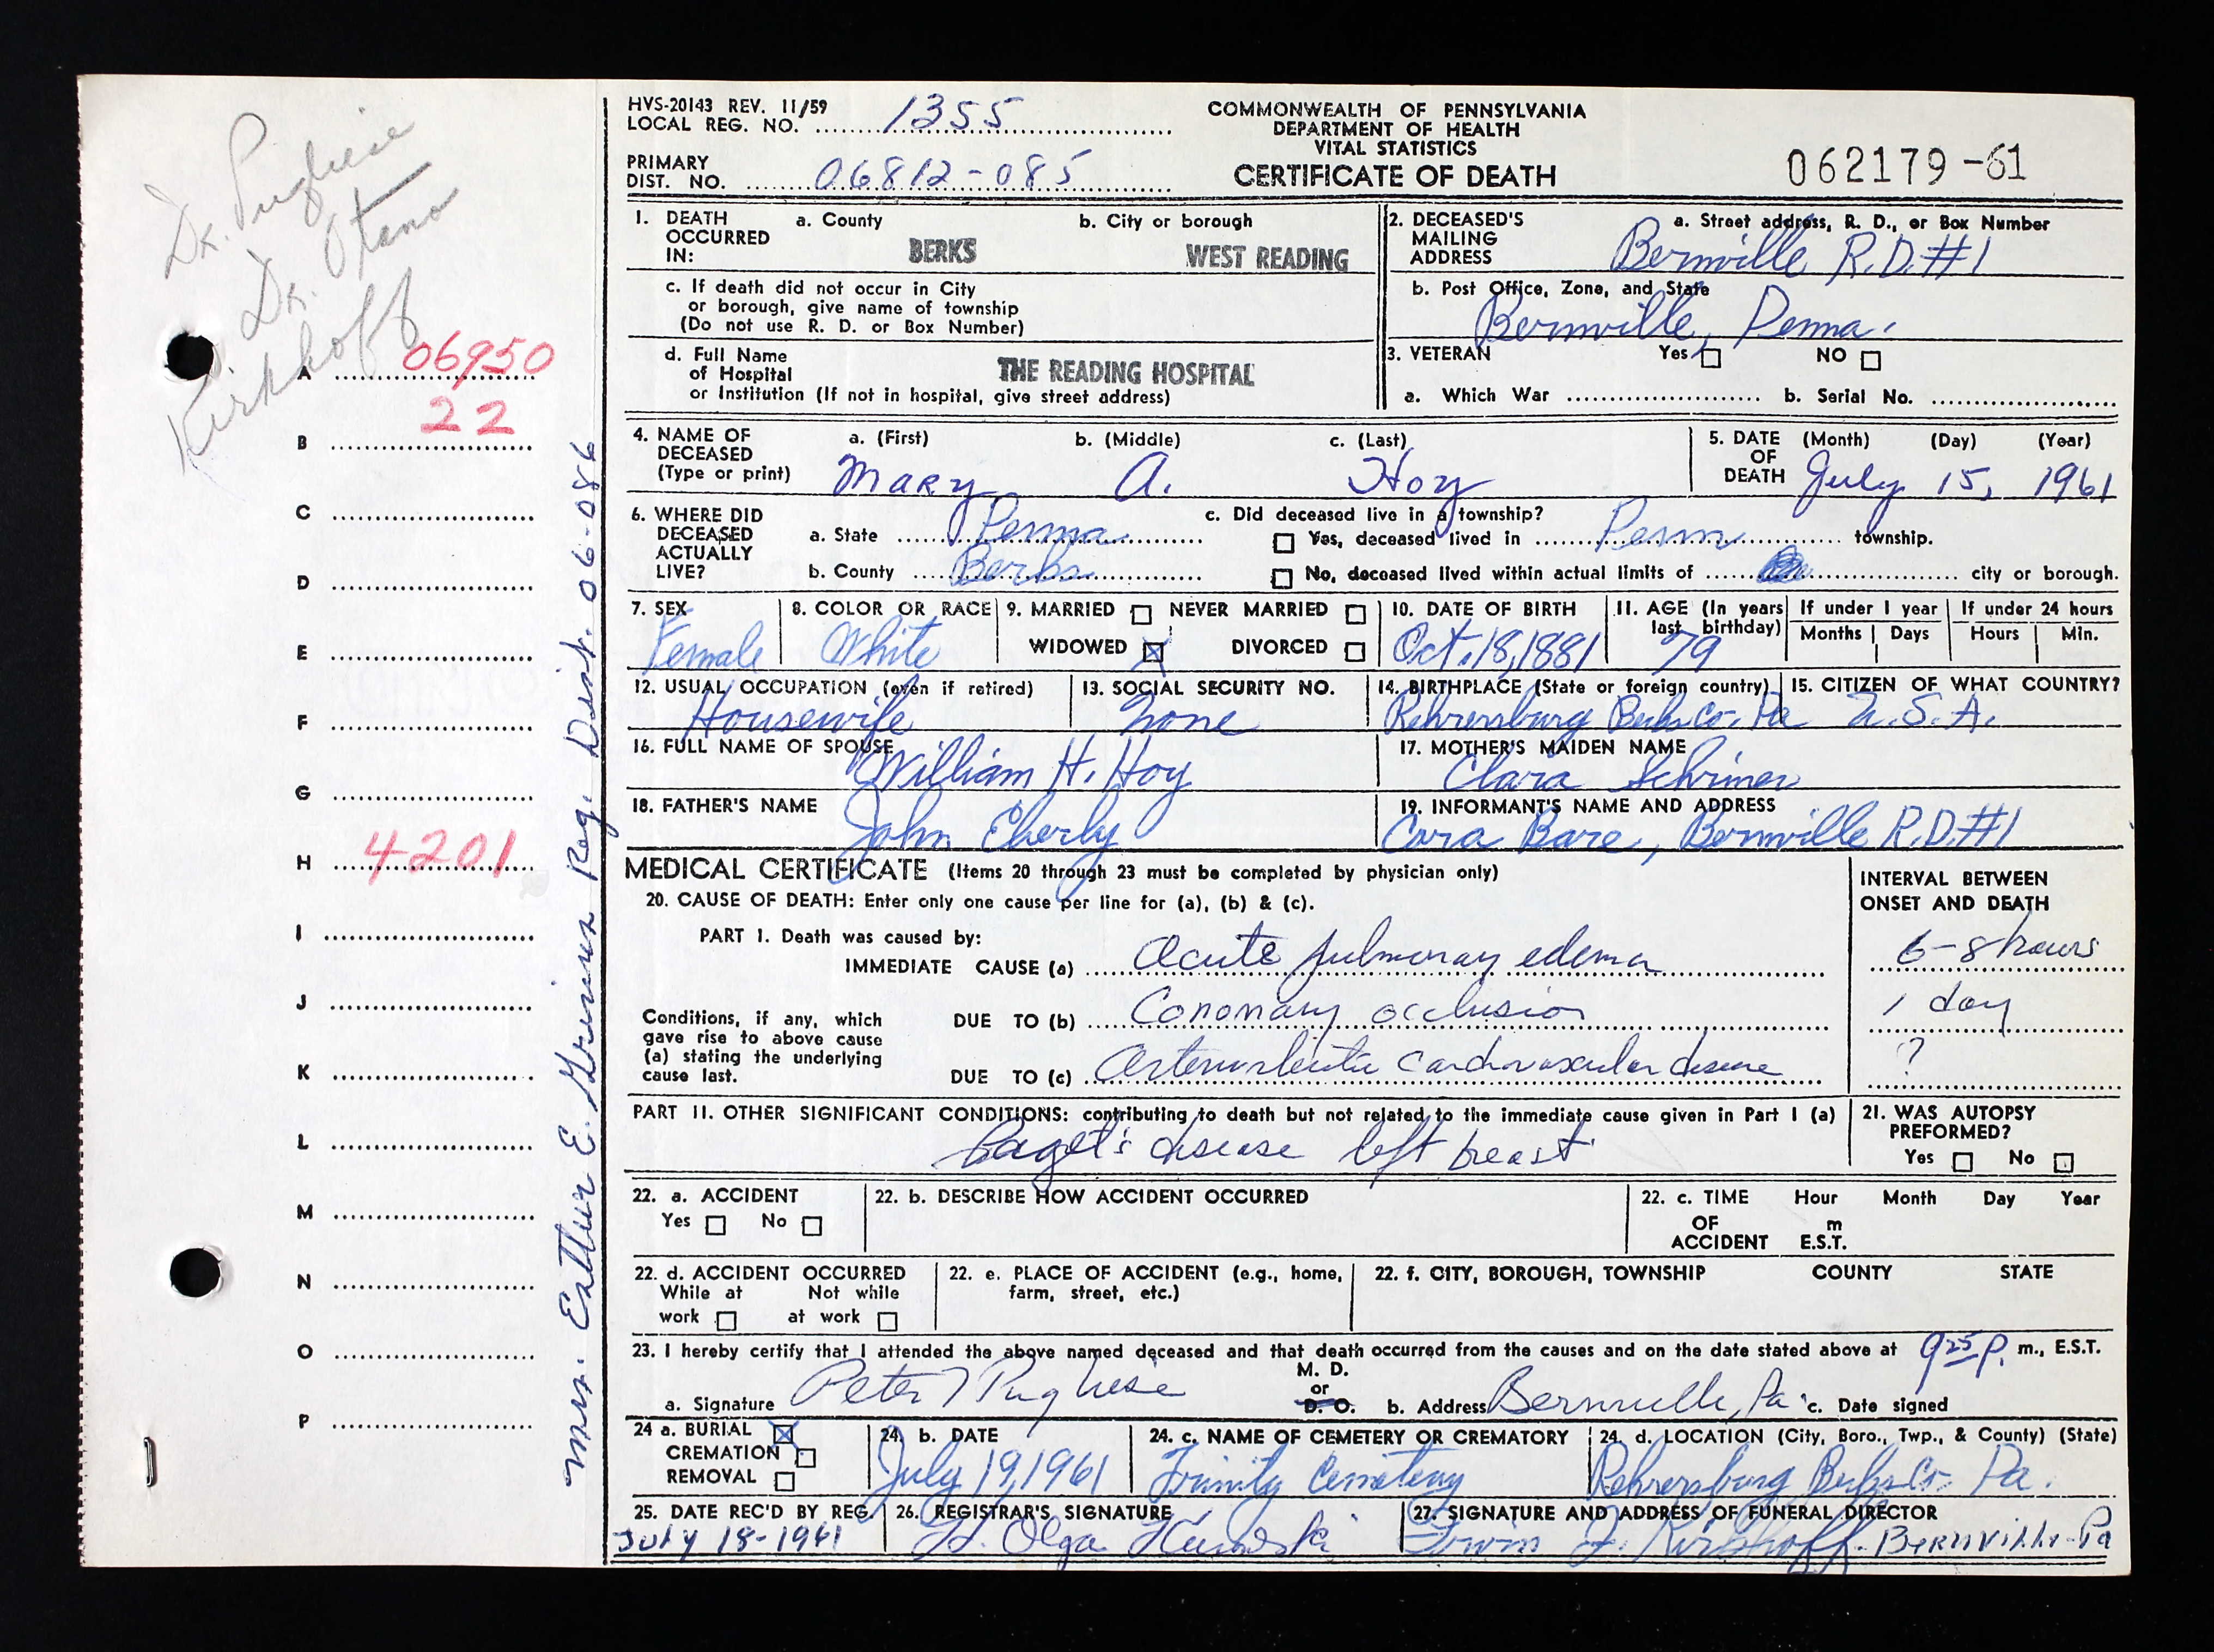 Dr. Pugliese
Dr. Otano
Kirkhoff
A 06950
B 22
C
D
E
F
G
H 4201
I
J
K
L
M
N
O
P
Mrs. Esther E. Reg. Dist. 06-086
HVS-20143 REV. 11/59
LOCAL REG. NO. 1355
PRIMARY
DIST. NO. 06812-085
COMMONWEALTH OF PENNSYLVANIA
DEPARTMENT OF HEALTH
VITAL STATISTICS
CERTIFICATE OF DEATH
062179-61
1. DEATH OCCURRED IN:
a. County
BERKS
b. City or borough
WEST READING
c. If death did not occur in City
or borough, give name of township
(Do not use R. D. or Box Number)
d. Full Name
of Hospital
THE READING HOSPITAL
or Institution (If not in hospital, give street address)
2. DECEASED'S
MAILING
ADDRESS
a. Street address, R. D., or Box Number
Bernville R.D.#1
b. Post Office, Zone, and State
Bernville, Penna.
3. VETERAN Yes NO
a. Which War b. Serial No.
4. NAME OF
DECEASED
(Type or print)
a. (First) b. (Middle) c. (Last)
Mary A. Hoy
5. DATE OF DEATH (Month) (Day) (Year)
July 15, 1961
6. WHERE DID
DECEASED
ACTUALLY
LIVE?
a. State Penna
b. County Berks
c. Did deceased live in a township?
Yes, deceased lived in Penn township.
No, deceased lived within actual limits of city or borough.
7. SEX
Female
8. COLOR OR RACE
White
9. MARRIED NEVER MARRIED
WIDOWED X DIVORCED
10. DATE OF BIRTH
Oct. 18, 1881
11. AGE (In years
last birthday)
79
If under 1 year
Months Days
If under 24 hours
Hours Min.
12. USUAL OCCUPATION (even if retired)
Housewife
13. SOCIAL SECURITY NO.
None
14. BIRTHPLACE (State or foreign country)
Rehrersburg Berks Co. Pa
15. CITIZEN OF WHAT COUNTRY?
U.S.A.
16. FULL NAME OF SPOUSE
William H. Hoy
17. MOTHER'S MAIDEN NAME
Clara Schrimer
18. FATHER'S NAME
John Eberly
19. INFORMANT'S NAME AND ADDRESS
Cora Bare, Bernville R.D.#1
MEDICAL CERTIFICATE (Items 20 through 23 must be completed by physician only)
20. CAUSE OF DEATH: Enter only one cause per line for (a), (b) & (c).
INTERVAL BETWEEN
ONSET AND DEATH
PART I. Death was caused by:
IMMEDIATE CAUSE (a) Acute pulmonary edema
6-8 hours
Conditions, if any, which
gave rise to above cause
(a) stating the underlying
cause last.
DUE TO (b) Coronary occlusion
1 day
DUE TO (c) Arteriosclerotic cardiovascular disease
?
PART II. OTHER SIGNIFICANT CONDITIONS: contributing to death but not related to the immediate cause given in Part I (a)
Paget's disease left breast
21. WAS AUTOPSY
PREFORMED?
Yes No
22. a. ACCIDENT
Yes No
22. b. DESCRIBE HOW ACCIDENT OCCURRED
22. c. TIME Hour Month Day Year
OF m
ACCIDENT E.S.T.
22. d. ACCIDENT OCCURRED
While at Not while
work at work
22. e. PLACE OF ACCIDENT (e.g., home,
farm, street, etc.)
22. f. CITY, BOROUGH, TOWNSHIP COUNTY STATE
23. I hereby certify that I attended the above named deceased and that death occurred from the causes and on the date stated above at 9 25 P. m., E.S.T.
a. Signature Peter J Pugliese
M. D.
or
D. O.
b. Address Bernville, Pa c. Date signed
24 a. BURIAL X
CREMATION
REMOVAL
24. b. DATE
July 19, 1961
24. c. NAME OF CEMETERY OR CREMATORY
Trinity Cemetery
24. d. LOCATION (City, Boro., Twp., & County) (State)
Rehrersburg Berks Co. Pa.
25. DATE REC'D BY REG.
July 18-1961
26. REGISTRAR'S SIGNATURE
H. Olga
27. SIGNATURE AND ADDRESS OF FUNERAL DIRECTOR
Irwin F. Kirkhoff-Bernville-Pa